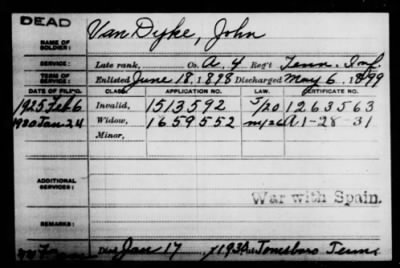 DEAD
NAME OF SOLDIER: Van Dyke, John
SERVICE: Late rank, Co. A, 4 Reg't Tenn. Inf.
TERM OF SERVICE: Enlisted June 18, 1898 Discharged May 6, 1899
DATE OF FILING. CLASS. APPLICATION NO. LAW. CERTIFICATE NO.
1925 Feb 6 Invalid, 1513592 J/20 1263563
1930 Jan 24 Widow, 1659552 A 1-28-31
Minor,
ADDITIONAL SERVICES:
War with Spain.
REMARKS:
Died Jan 17, 1930, at Jonesboro Tenn